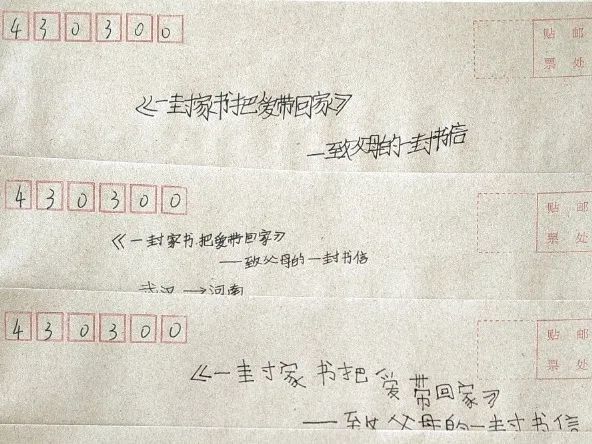 430300
贴 邮
票 处
《一封家书把爱带回家》
一致父母的一封书信
430300
贴 邮
票 处
《一封家书把爱带回家》
——致父母的一封书信
武汉→河南
430300
贴 邮
票 处
《一封家书把爱带回家》
——致父母的一封书信